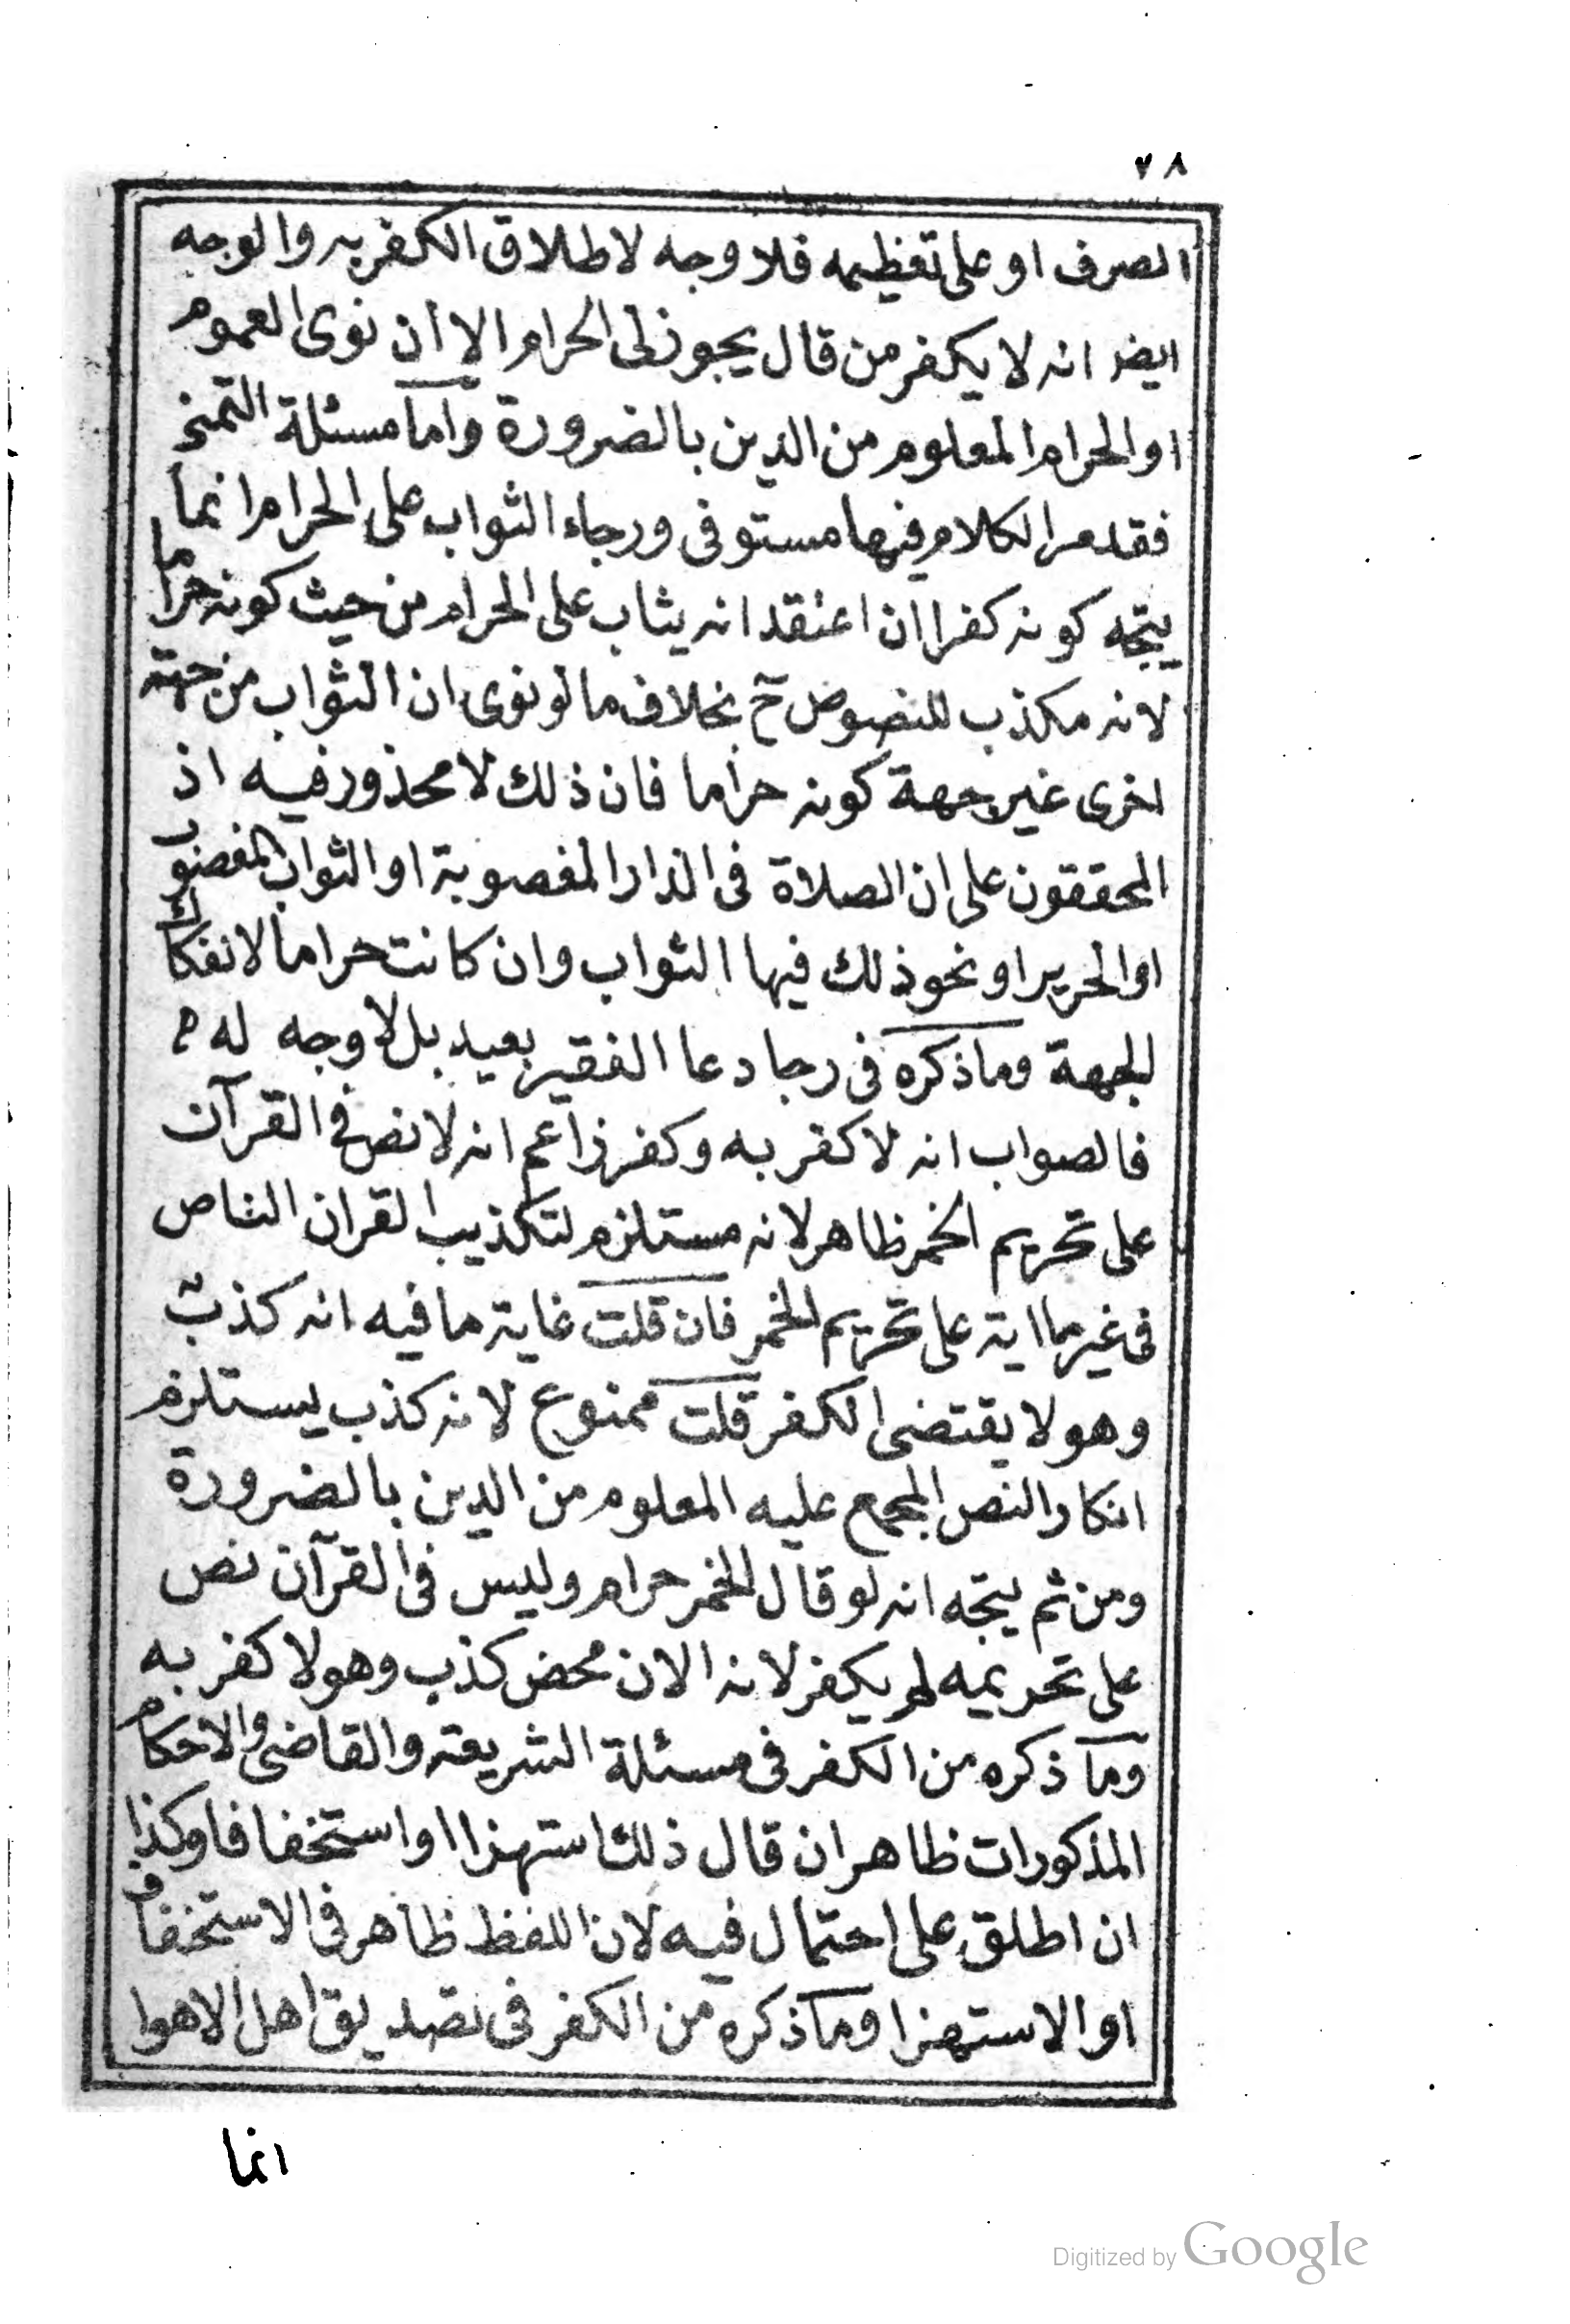 ٧٨
الصرف او على تعظيمه فلا وجه لاطلاق الكفر به والوجه
ايضا انه لا يكفر من قال يجوز لى الحرام الا أن نوى العموم
او الحرام المعلوم من الدين بالضرورة وأما مسئلة التمنى
فقد مر الكلام فيها مستوفى ورجاء الثواب على الحرام انما
يتجه كونه كفرا ان اعتقد انه يثاب على الحرام من حيث كونه حراما
لانه مكذب للنصوص ح بخلاف ما لو نوى ان الثواب من جهة
اخرى غير جهة كونه حراما فان ذلك لا محذور فيه اذ
المحققون على ان الصلاة فى الدار المغصوبة او الثواب المغصوب
او الحرير او نحو ذلك فيها الثواب وان كانت حراما لانفكاك
الجهة وما ذكره فى رجا دعا الفقير بعيد بل لا وجه له
فالصواب انه لا كفر به وكفر زاعم انه لا نص فى القرآن
على تحريم الخمر ظاهر لانه مستلزم لتكذيب القران الناص
فى غير ما اية على تحريم الخمر فان قلت غاية ما فيه انه كذب
وهو لا يقتضى الكفر قلت ممنوع لانه كذب يستلزم
انكار النص المجمع عليه المعلوم من الدين بالضرورة
ومن ثم يتجه انه لو قال الخمر حرام وليس فى القرآن نص
على تحريمه لم يكفر لانه الان محض كذب وهو لا كفر به
وما ذكره من الكفر فى مسئلة الشريعة والقاضى والاحكام
المذكورات ظاهر ان قال ذلك استهزا او استخفافا وكذا
ان اطلق على احتمال فيه لان اللفظ ظاهر فى الاستخفاف
او الاستهزا وما ذكره من الكفر فى تصديق اهل الاهوا
انما
Digitized by Google